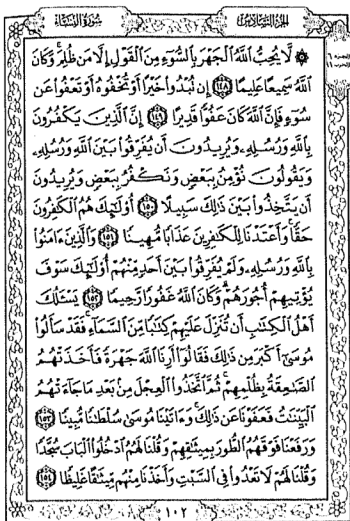 الجزء السادس سورة النساء
۞ لَّا يُحِبُّ ٱللَّهُ ٱلْجَهْرَ بِٱلسُّوٓءِ مِنَ ٱلْقَوْلِ إِلَّا مَن ظُلِمَ ۚ وَكَانَ
ٱللَّهُ سَمِيعًا عَلِيمًا ١٤٨ إِن تُبْدُوا۟ خَيْرًا أَوْ تُخْفُوهُ أَوْ تَعْفُوا۟ عَن
سُوٓءٍ فَإِنَّ ٱللَّهَ كَانَ عَفُوًّا قَدِيرًا ١٤٩ إِنَّ ٱلَّذِينَ يَكْفُرُونَ
بِٱللَّهِ وَرُسُلِهِۦ وَيُرِيدُونَ أَن يُفَرِّقُوا۟ بَيْنَ ٱللَّهِ وَرُسُلِهِۦ
وَيَقُولُونَ نُؤْمِنُ بِبَعْضٍ وَنَكْفُرُ بِبَعْضٍ وَيُرِيدُونَ
أَن يَتَّخِذُوا۟ بَيْنَ ذَٰلِكَ سَبِيلًا ١٥٠ أُو۟لَٰٓئِكَ هُمُ ٱلْكَٰفِرُونَ
حَقًّا ۚ وَأَعْتَدْنَا لِلْكَٰفِرِينَ عَذَابًا مُّهِينًا ١٥١ وَٱلَّذِينَ ءَامَنُوا۟
بِٱللَّهِ وَرُسُلِهِۦ وَلَمْ يُفَرِّقُوا۟ بَيْنَ أَحَدٍ مِّنْهُمْ أُو۟لَٰٓئِكَ سَوْفَ
يُؤْتِيهِمْ أُجُورَهُمْ ۗ وَكَانَ ٱللَّهُ غَفُورًا رَّحِيمًا ١٥٢ يَسْـَٔلُكَ
أَهْلُ ٱلْكِتَٰبِ أَن تُنَزِّلَ عَلَيْهِمْ كِتَٰبًا مِّنَ ٱلسَّمَآءِ ۚ فَقَدْ سَأَلُوا۟
مُوسَىٰٓ أَكْبَرَ مِن ذَٰلِكَ فَقَالُوٓا۟ أَرِنَا ٱللَّهَ جَهْرَةً فَأَخَذَتْهُمُ
ٱلصَّٰعِقَةُ بِظُلْمِهِمْ ۚ ثُمَّ ٱتَّخَذُوا۟ ٱلْعِجْلَ مِنۢ بَعْدِ مَا جَآءَتْهُمُ
ٱلْبَيِّنَٰتُ فَعَفَوْنَا عَن ذَٰلِكَ ۚ وَءَاتَيْنَا مُوسَىٰ سُلْطَٰنًا مُّبِينًا ١٥٣
وَرَفَعْنَا فَوْقَهُمُ ٱلطُّورَ بِمِيثَٰقِهِمْ وَقُلْنَا لَهُمُ ٱدْخُلُوا۟ ٱلْبَابَ سُجَّدًا
وَقُلْنَا لَهُمْ لَا تَعْدُوا۟ فِى ٱلسَّبْتِ وَأَخَذْنَا مِنْهُم مِّيثَٰقًا غَلِيظًا ١٥٤
١٠٢